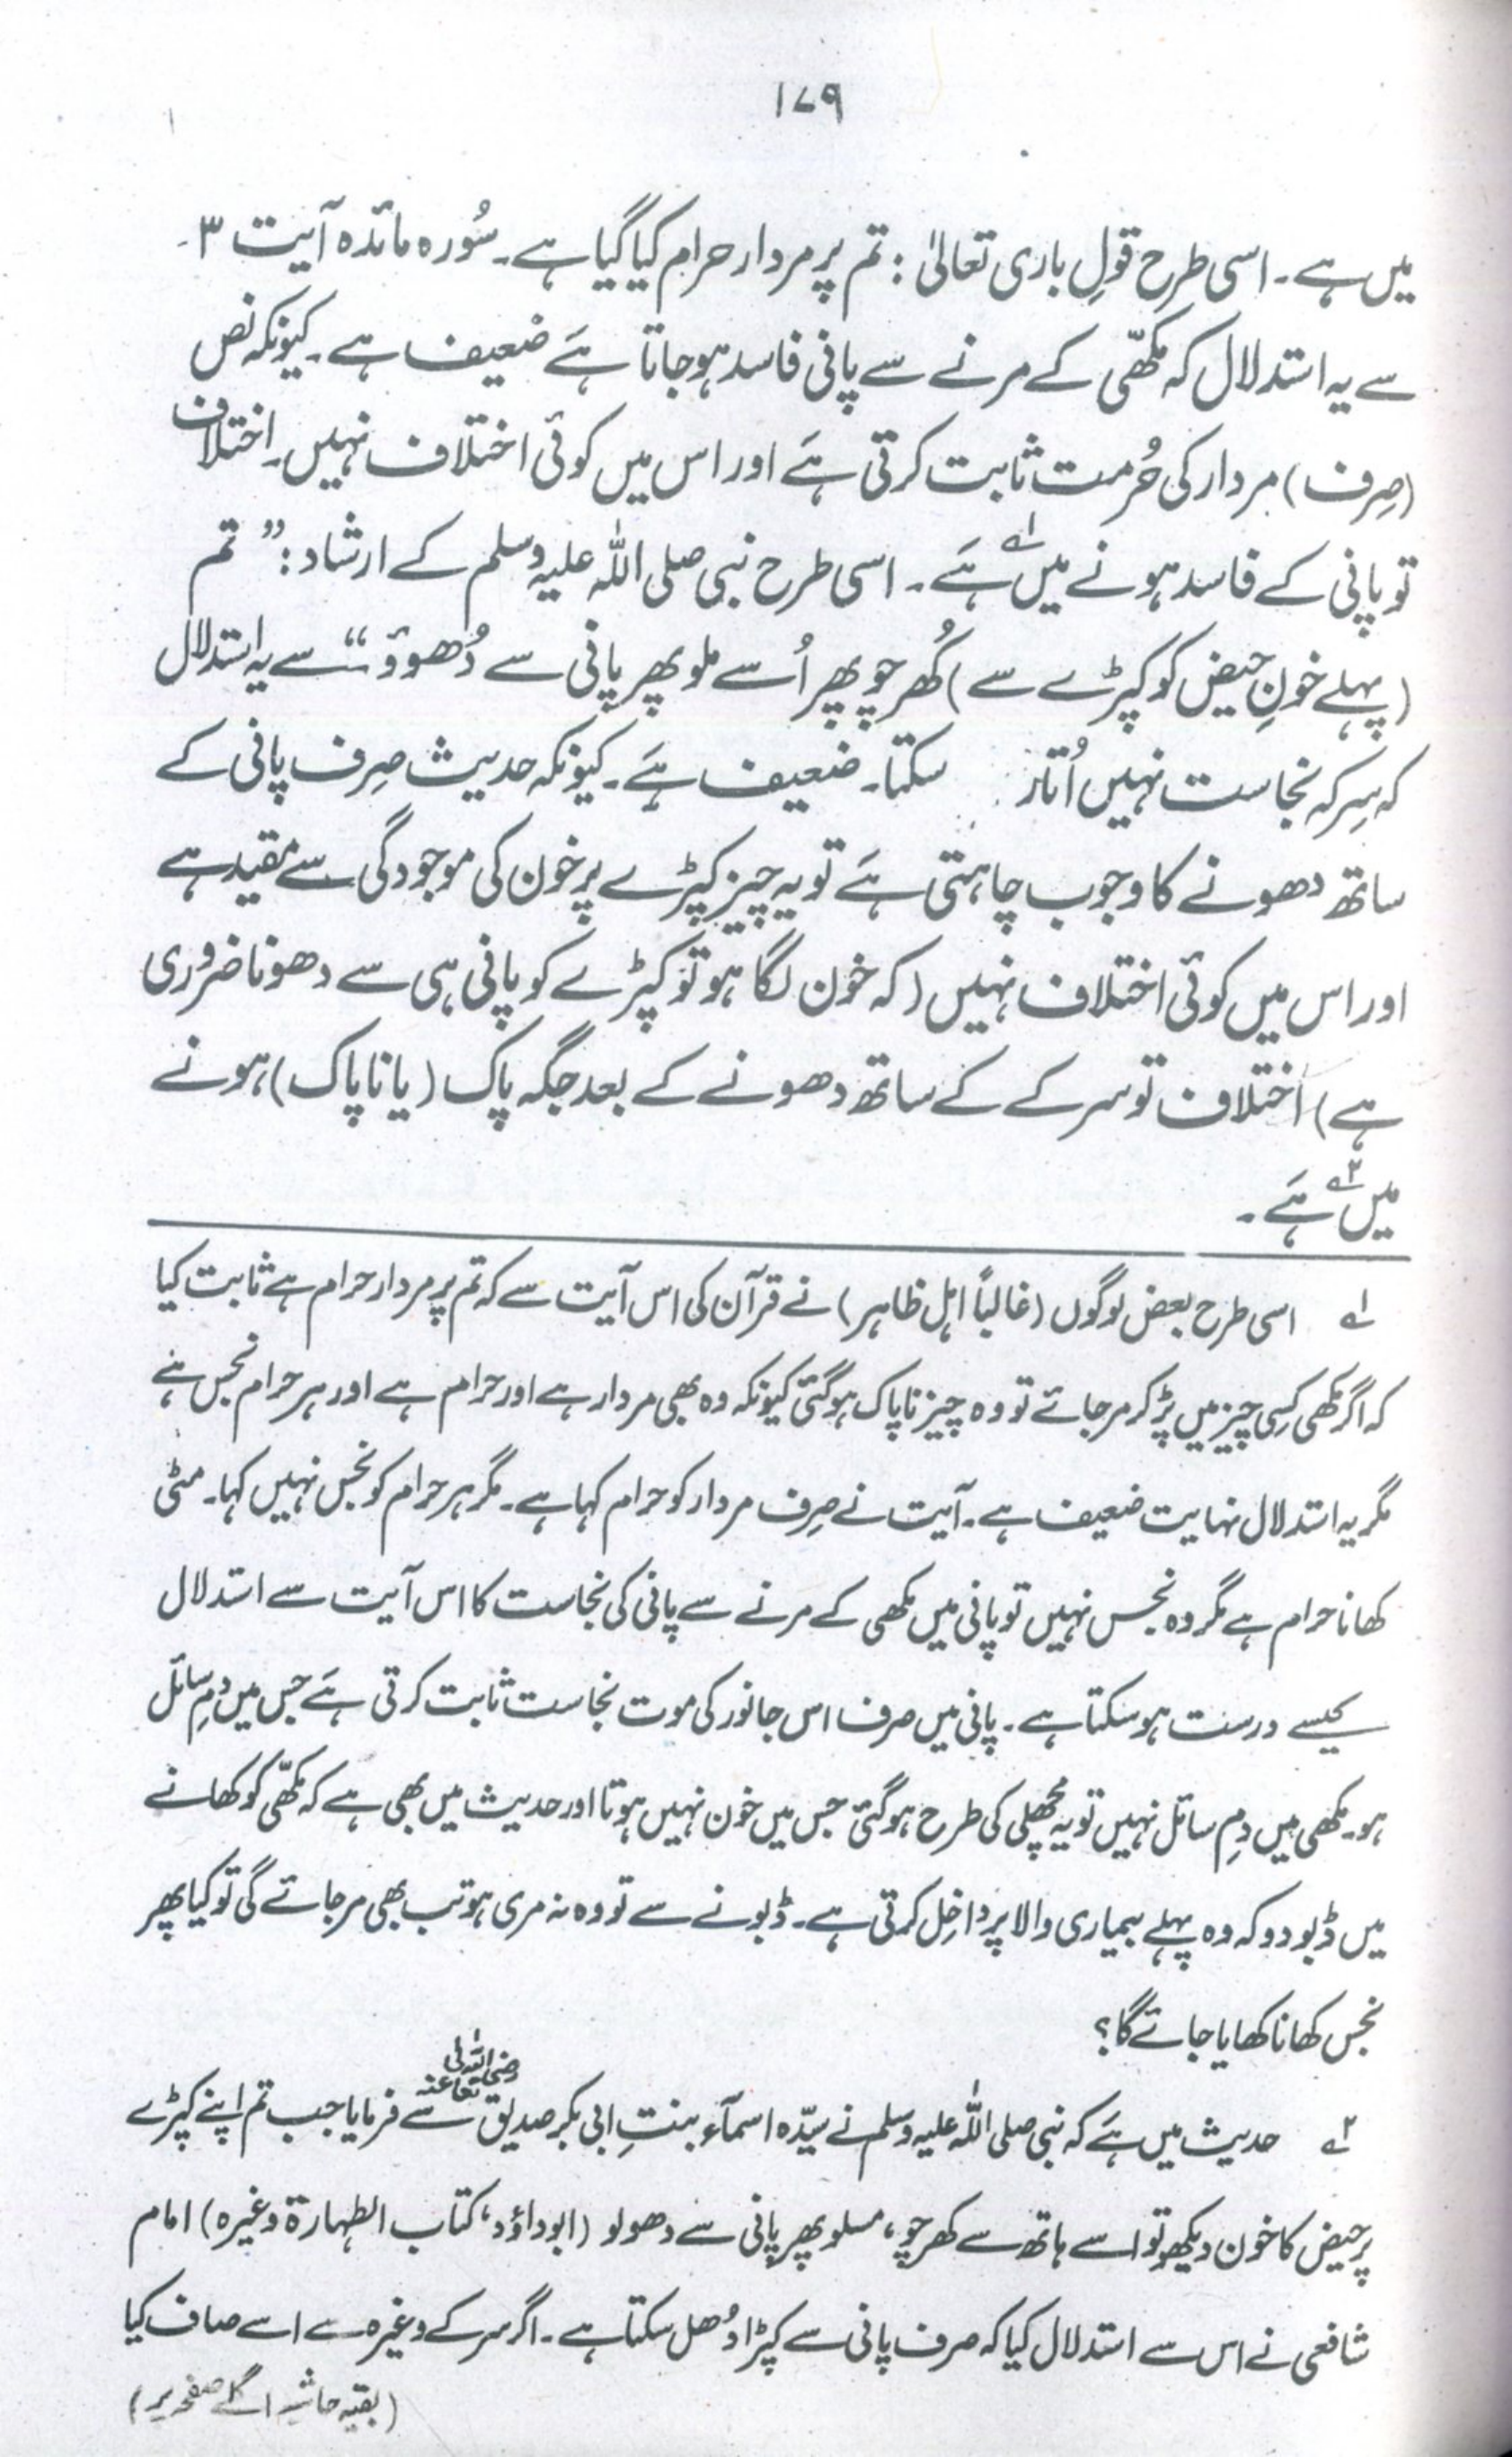 ۱۷۹
میں ہے۔ اسی طرح قولِ باری تعالیٰ : تم پر مردار حرام کیا گیا ہے۔ سُورہ مائدہ آیت ۳۔
سے یہ استدلال کہ مکھّی کے مرنے سے پانی فاسد ہو جاتا ہَے ضعیف ہے۔ کیونکہ نص
(صِرف) مردار کی حُرمت ثابت کرتی ہَے اور اس میں کوئی اختلاف نہیں۔ اختلاف
تو پانی کے فاسد ہونے میں۱؎ ہَے۔ اسی طرح نبی صلی اللّٰہ علیہ وسلم کے ارشاد : ” تم
(پہلے خونِ حیض کو کپڑے سے) کُھرچو پھر اُسے ملو پھر پانی سے دُھوؤ “ سے یہ استدلال
کہ سِرکہ نجاست نہیں اُتار سکتا۔ ضعیف ہَے۔ کیونکہ حدیث صِرف پانی کے
ساتھ دھونے کا وجوب چاہتی ہَے تو یہ چیز کپڑے پر خون کی موجودگی سے مقید ہے
اور اس میں کوئی اختلاف نہیں (کہ خون لگا ہو تو کپڑے کو پانی ہی سے دھونا ضروری
ہے) اختلاف تو سرکے کے ساتھ دھونے کے بعد جگہ پاک (یا ناپاک) ہونے
میں۲؎ ہَے۔
۱؎ اسی طرح بعض لوگوں (غالباً اہل ظاہر) نے قرآن کی اس آیت سے کہ تم پر مردار حرام ہے ثابت کیا
کہ اگر مکھی کِسی چیز میں پڑ کر مر جائے تو وہ چیز ناپاک ہو گئی کیونکہ وہ بھی مردار ہے اور حرام ہے اور ہر حرام نجس ہَے
مگر یہ استدلال نہایت ضعیف ہے۔ آیت نے صِرف مردار کو حرام کہا ہے۔ مگر ہر حرام کو نجس نہیں کہا۔ مٹی
کھانا حرام ہے مگر وہ نجس نہیں تو پانی میں مکھی کے مرنے سے پانی کی نجاست کا اس آیت سے استدلال
کیسے درست ہو سکتا ہے۔ پانی میں صرف اس جانور کی موت نجاست ثابت کرتی ہَے جس میں دمِ سائل
ہو۔ مکھی میں دمِ سائل نہیں تو یہ مچھلی کی طرح ہو گئی جس میں خون نہیں ہوتا اور حدیث میں بھی ہے کہ مکھّی کو کھانے
میں ڈبو دو کہ وہ پہلے بیماری والا پر داخِل کرتی ہے۔ ڈبونے سے تو وہ نہ مری ہو تب بھی مر جائے گی تو کیا پھر
نجس کھانا کھایا جائے گا؟
۲؎ حدیث میں ہَے کہ نبی صلی اللّٰہ علیہ وسلم نے سیّدہ اسمآء بنتِ ابی بکر صدیق رضی اللّٰہ تعالٰی عنہ سے فرمایا جب تم اپنے کپڑے
پر حیض کا خون دیکھو تو اسے ہاتھ سے کھرچو، مسلو پھر پانی سے دھو لو (ابوداؤد، کتاب الطہارة وغیرہ) امام
شافعی نے اس سے استدلال کیا کہ صرف پانی سے کپڑا دُھل سکتا ہے۔ اگر سرکے وغیرہ سے اسے صاف کیا
(بقیہ حاشیہ اگلے صفحہ پر)